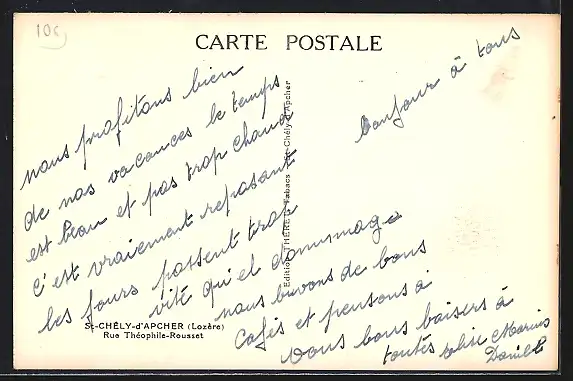 10€
CARTE POSTALE
nous profitons bien
de nos vacances le temps
est beau et pas trop chaud
c'est vraiment reposant
les jours passent trop
vite qu'el dommage
nous buvons de bons
Cafés et pensons à
vous bons baisers à
toutes Marius
Daniel
bonjour à tous
Edition THÉRET, Tabacs St-Chély d'Apcher
St-CHÉLY-d'APCHER (Lozère)
Rue Théophile-Rousset